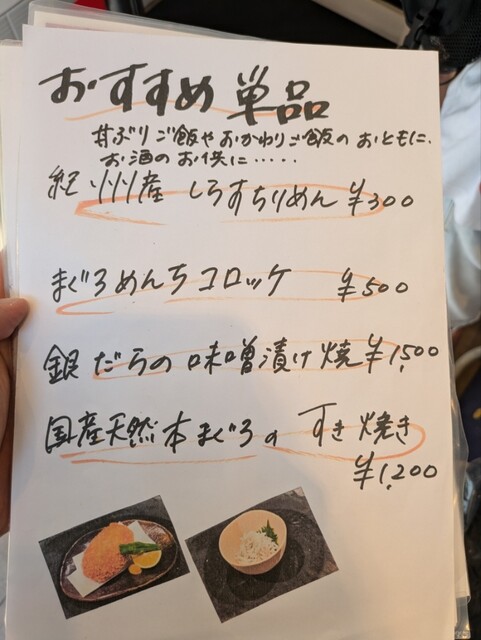 おすすめ 単品
丼ぶりご飯やおかわりご飯のおともに、
お酒のお供に……
紀州産 しらすちりめん ¥300
まぐろめんちコロッケ ¥500
銀だらの味噌漬け焼 ¥1,500
国産天然本まぐろのすき焼き
¥1,200